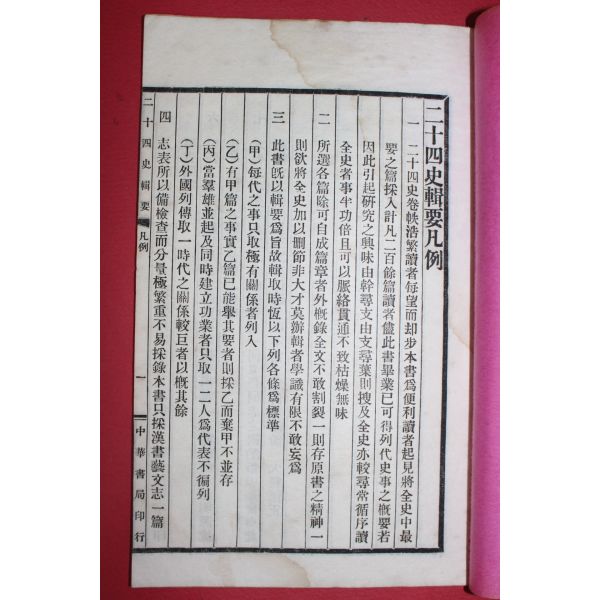 二十四史輯要凡例
一　二十四史卷帙浩繁讀者每望而却步本書爲便利讀者起見將全史中最
要之篇採入計凡二百餘篇讀者儘此書畢業已可得列代史事之概要若
因此引起研究之興味由幹尋支由支尋葉則搜及全史亦較尋常循序讀
全史者事半功倍且可以脈絡貫通不致枯燥無味
二　所選各篇除可自成篇章者外概錄全文不敢割裂一則存原書之精神一
則欲將全史加以刪節非大才莫辦輯者學識有限不敢妄爲
三　此書旣以輯要爲旨故輯取時恆以下列各條爲標準
（甲）每代之事只取極有關係者列入
（乙）有甲篇之事實乙篇已能舉其要者則採乙而棄甲不並存
（丙）當羣雄並起及同時建立功業者只取一二人爲代表不徧列
（丁）外國列傳取一時代之關係較巨者以概其餘
四　志表所以備檢查而分量極繁重不易採錄本書只採漢書藝文志一篇
二十四史輯要　凡例　一　中華書局印行